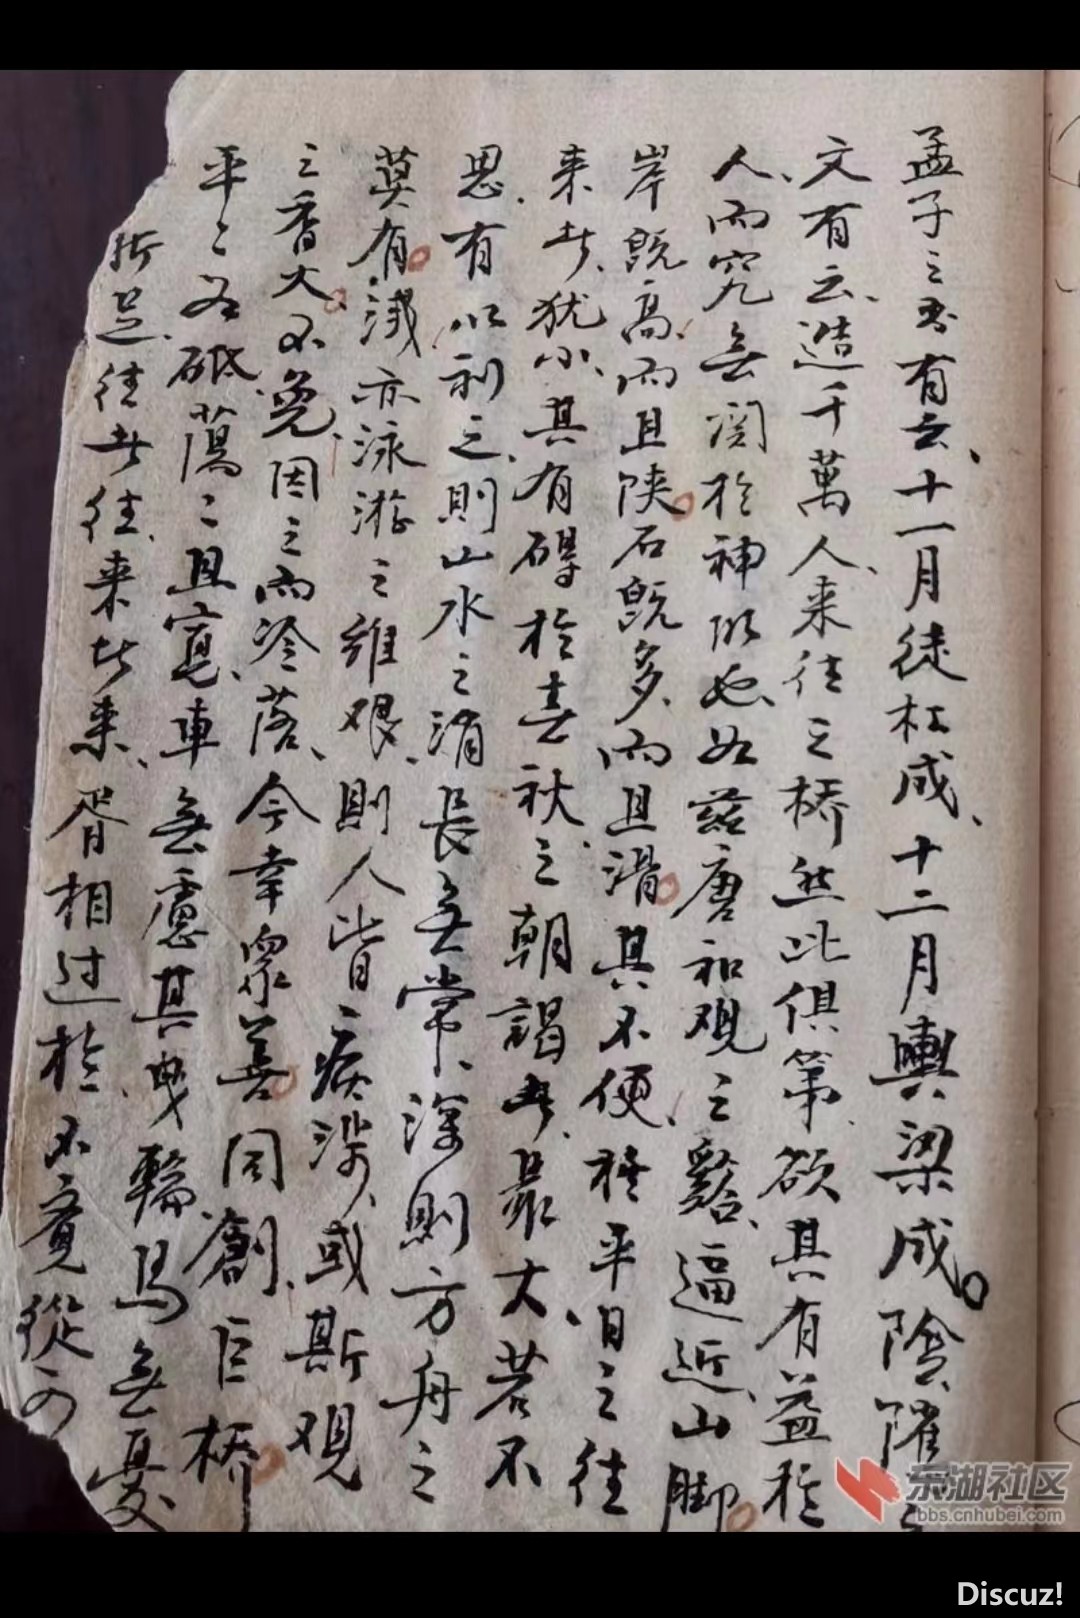 孟子之書有云十一月徒杠成十二月輿梁成陰隲之
文有云造千萬人来往之橋然此俱第欲其有益於
人而究無関於神所也如茲唐和观之谿逼近山脚
岸既高而且陕石既多而且滑其不便於平日之往
来者犹小其有碍於春秋之朝謁者最大若不
思有以利之則山水之消長無常深則方舟之
莫有淺亦泳游之維艰則人皆病涉或斯观
之香火不免因之而冷落今幸眾善同創巨橋
平之如砥蕩之且寬車無慮其曳輪馬無憂
折足往者往来者来胥相过於不竟從
东湖社区
bbs.cnhubei.com
Discuz!